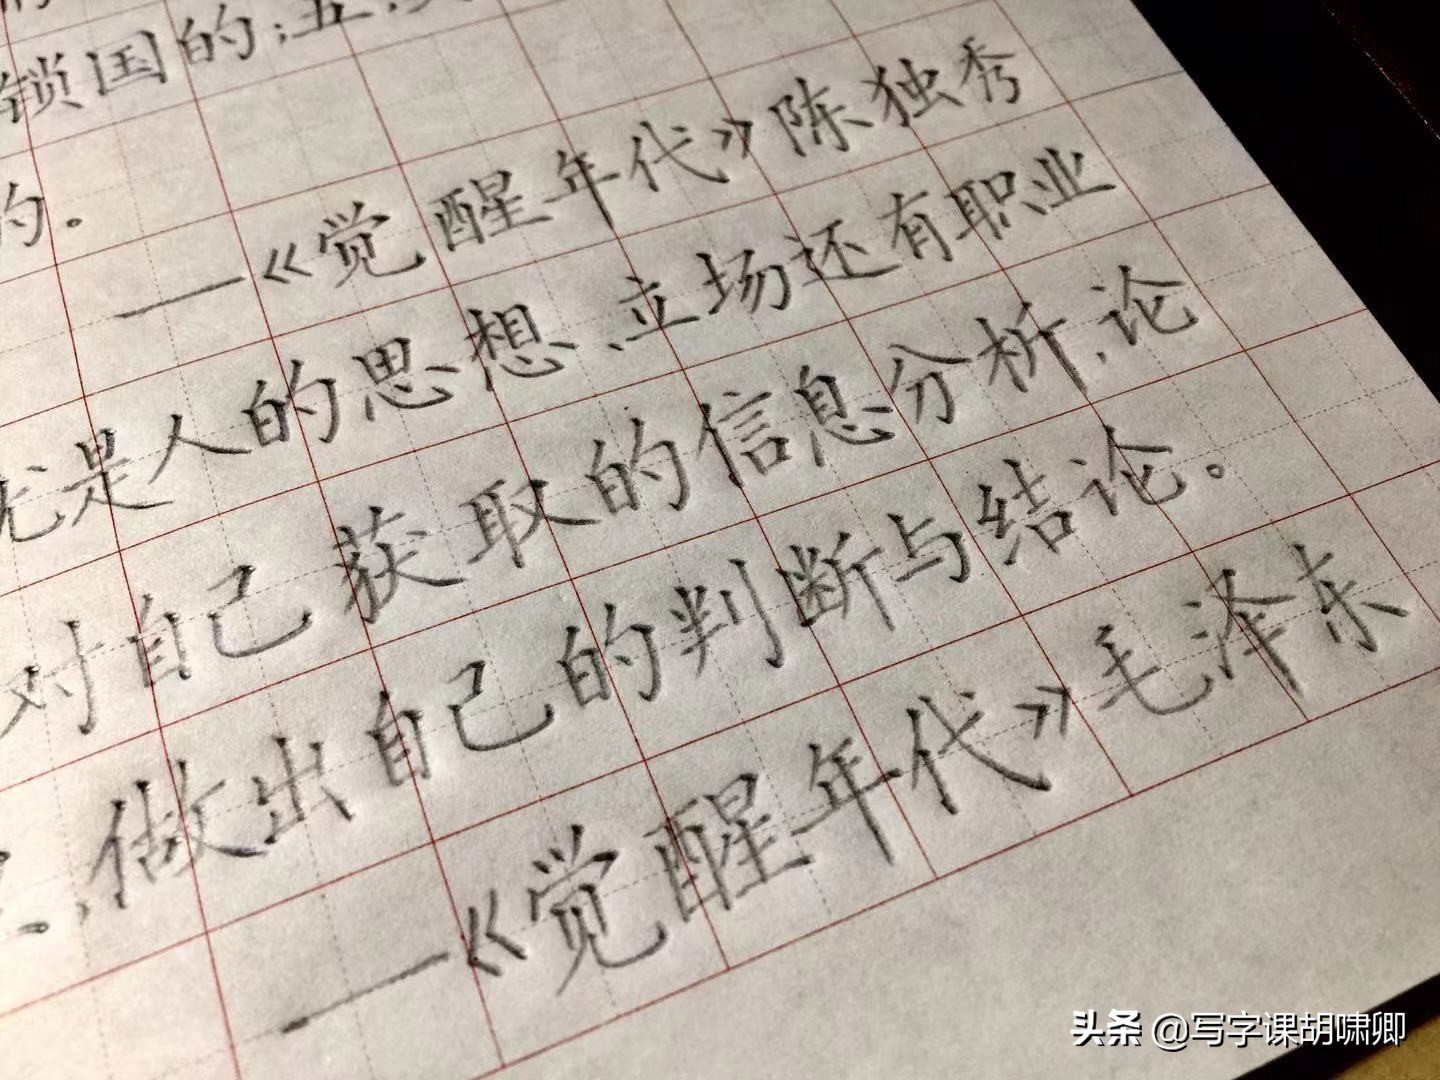 锁国的;五,
的。
——《觉醒年代》陈独秀
就是人的思想、立场还有职业
对自己获取的信息分析,论
,做出自己的判断与结论。
——《觉醒年代》毛泽东
头条 @写字课胡啸卿